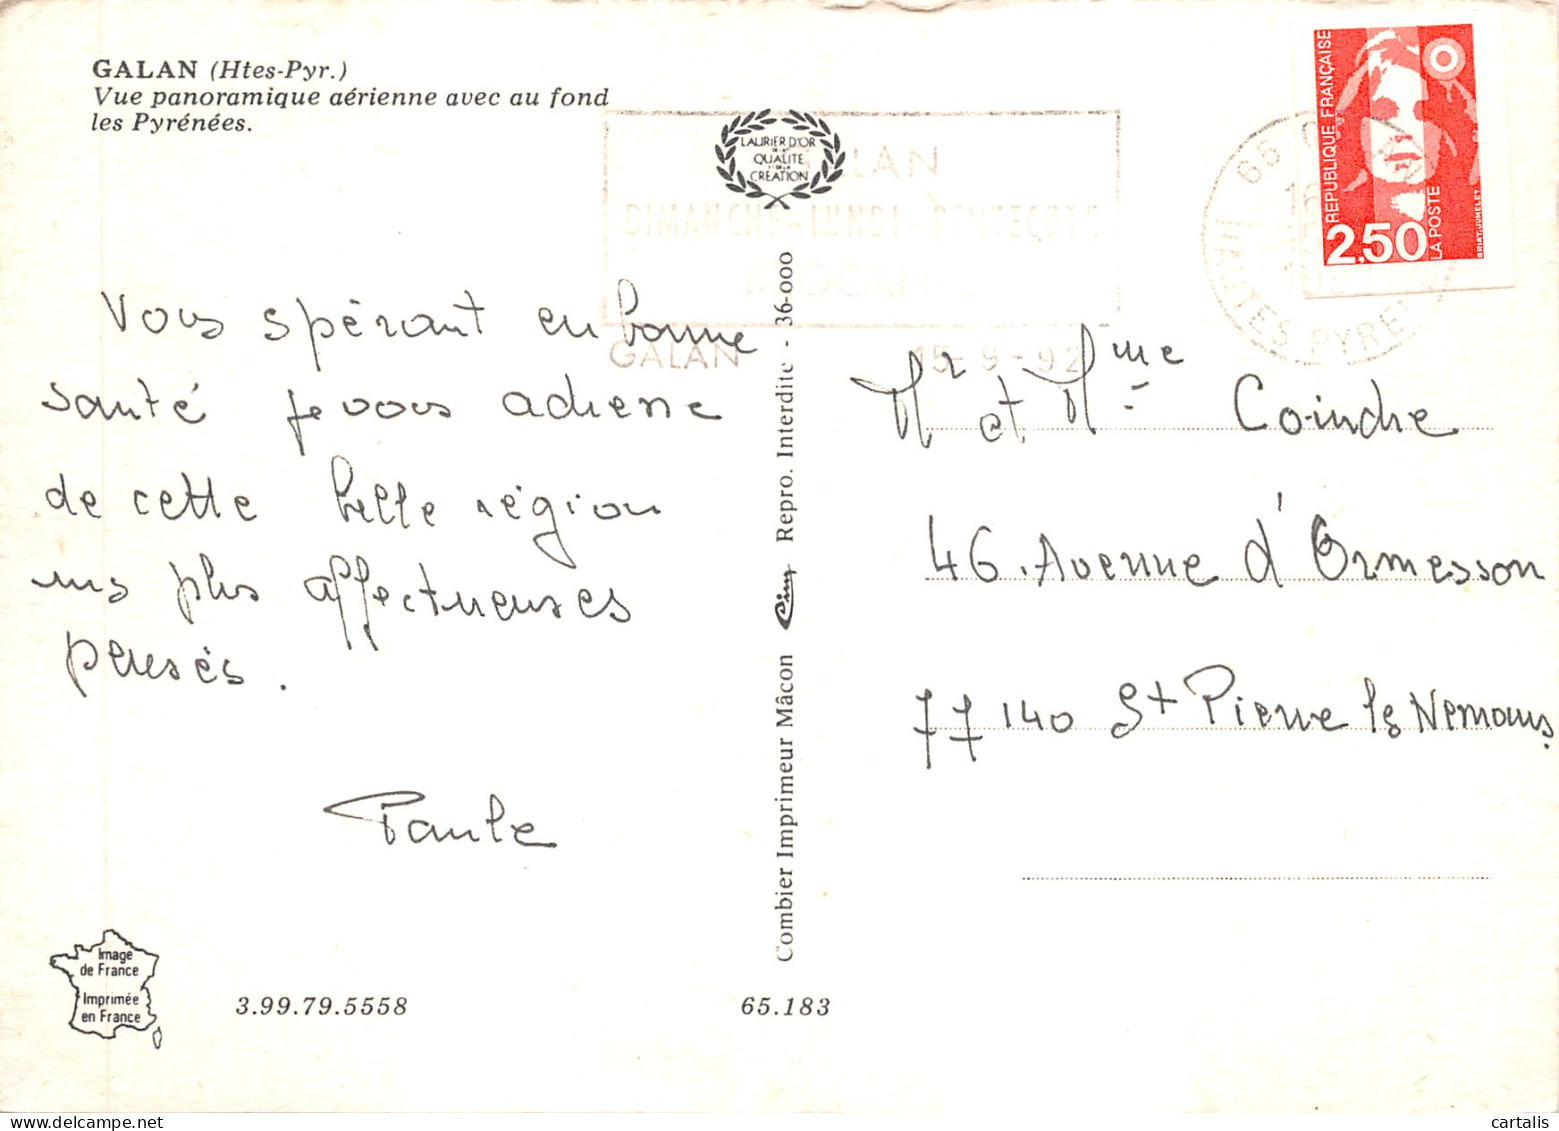 GALAN (Htes-Pyr.)
Vue panoramique aérienne avec au fond
les Pyrénées.
LAURIER D'OR
DE LA
QUALITÉ
ET DE LA
CRÉATION
GALAN
DIMANCHE - LUNDI - PENTECÔTE
BROCANTE
GALAN 15-9-92
65 GALAN
HAUTES PYRENEES
RÉPUBLIQUE FRANÇAISE
2,50
LA POSTE
BRIAT-JUMELET
Vous spérant en bonne
santé je vous adresse
de cette belle région
mes plus affectueuses
pensés.
Paule
Combier Imprimeur Mâcon Cim Repro. Interdite - 36-000
Mr et Mme Coindre
46. Avenue d'Ormesson
77140 St Pierre les Nemours
Image
de France
Imprimée
en France
3.99.79.5558
65.183
cartalis